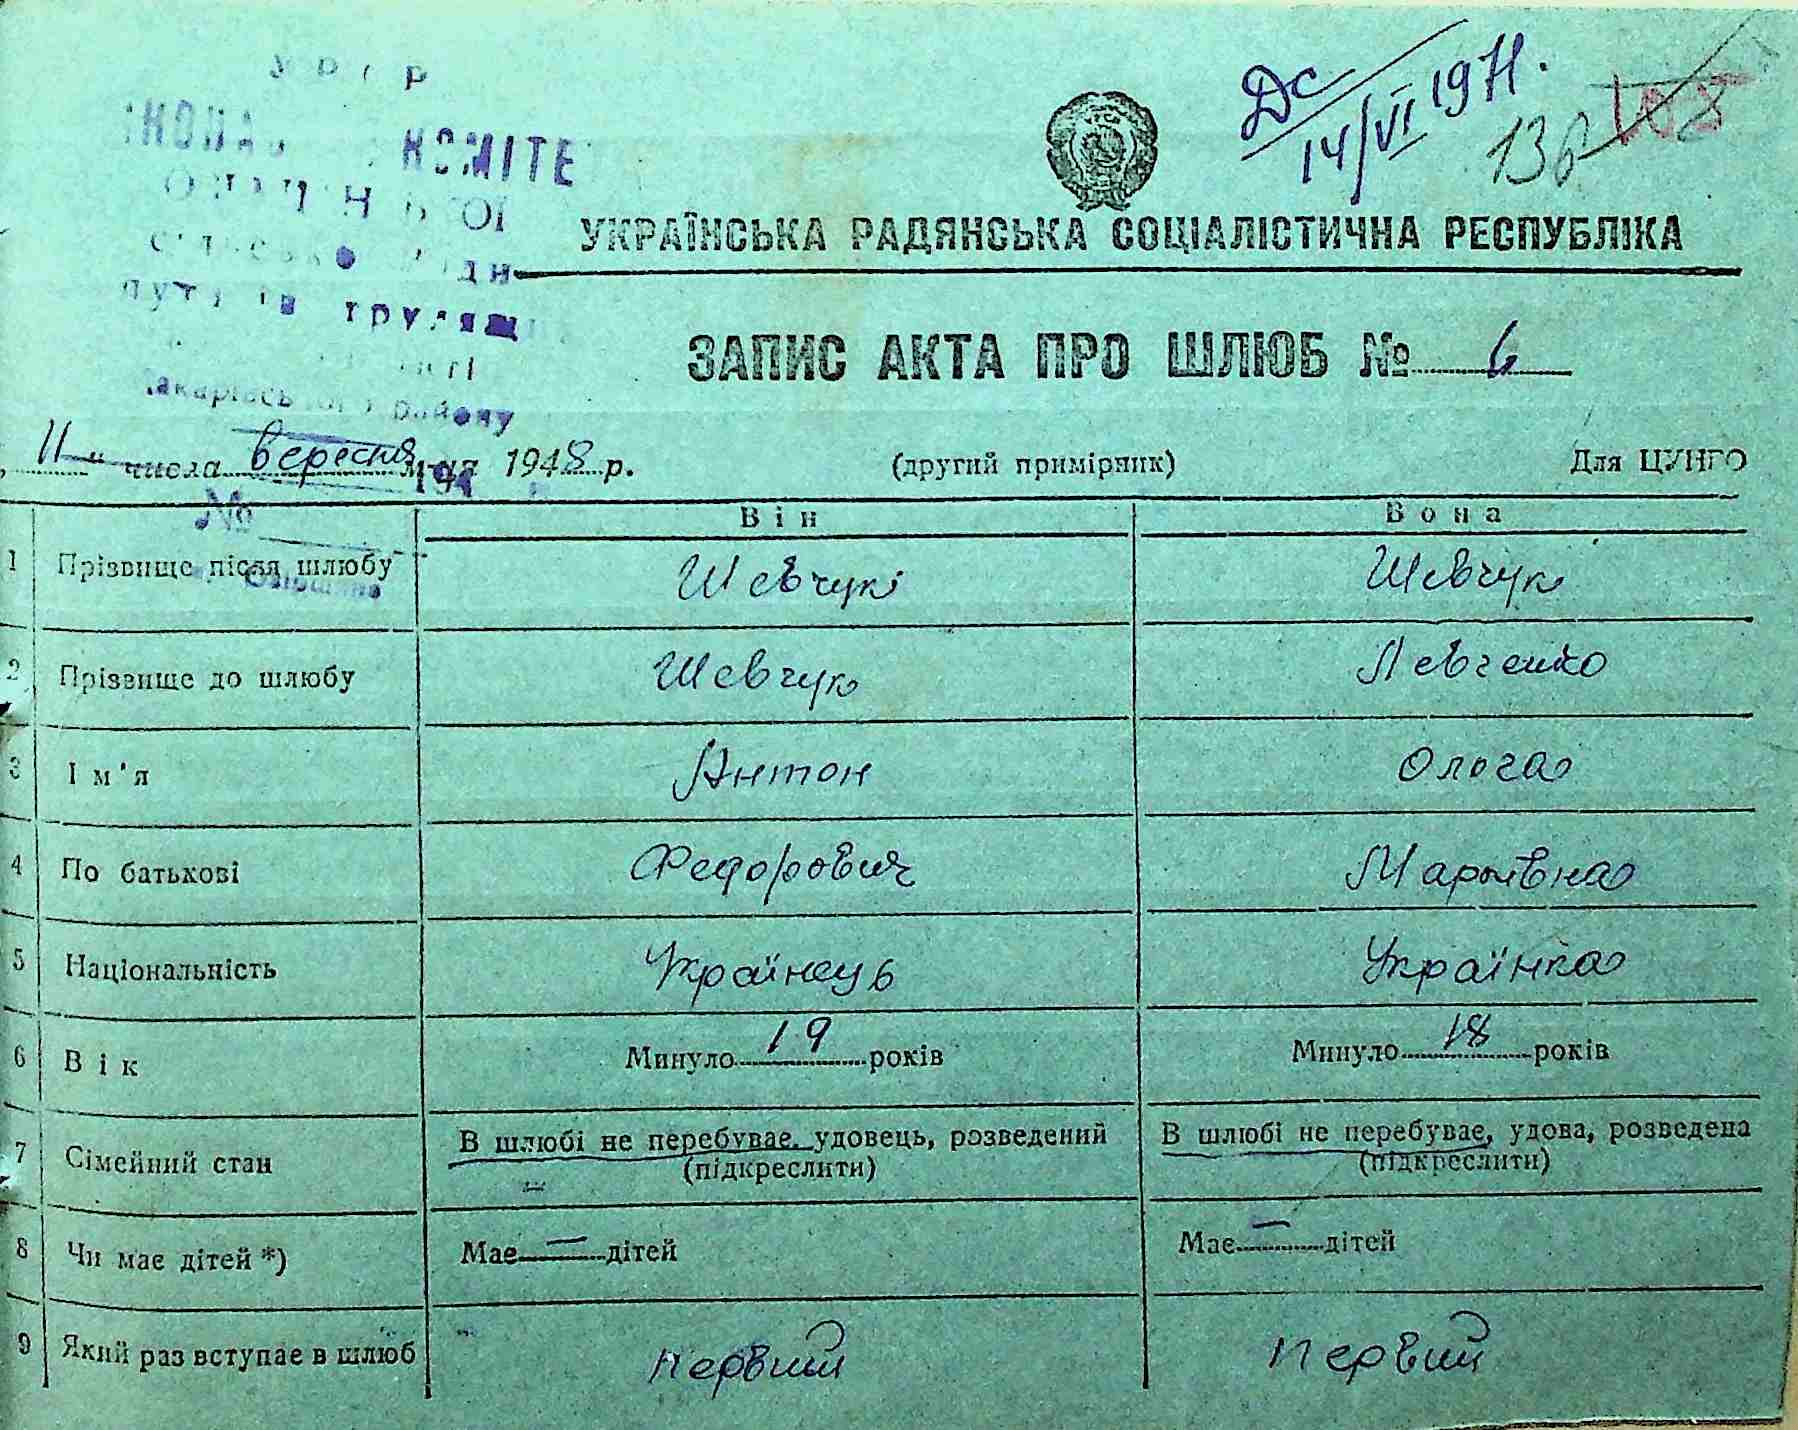 УРСР
КОМІТЕ
трудящ
району
Дс
14/VI 1971.
УРСР
УКРАЇНСЬКА РАДЯНСЬКА СОЦІАЛІСТИЧНА РЕСПУБЛІКА
ЗАПИС АКТА ПРО ШЛЮБ № 6
„ 11 " числа вересня м-ця 1948 р. (другий примірник) Для ЦУНГО
194
№
Він Вона
1 Прізвище після шлюбу Шевчук Шевчук
2 Прізвище до шлюбу Шевчук Левченко
3 Ім'я Антон Ольга
4 По батькові Федорович Марківна
5 Національність Українець Українка
6 Вік Минуло 19 років Минуло 18 років
7 Сімейний стан В шлюбі не перебуває, удовець, розведений В шлюбі не перебуває, удова, розведена
(підкреслити) (підкреслити)
8 Чи має дітей *) Має — дітей Має — дітей
9 Який раз вступає в шлюб первий первий